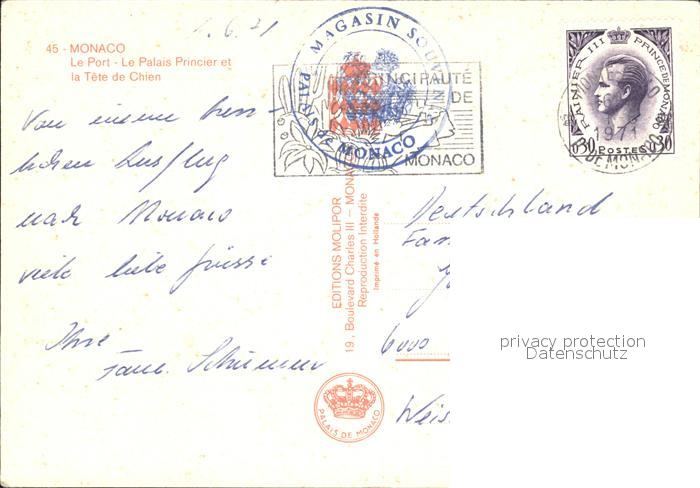 1.6.71
45 - MONACO
Le Port - Le Palais Princier et
la Tête de Chien
MAGASIN SOUVENIRS
PALAIS de MONACO
PRINCIPAUTÉ
DE
MONACO
RAINIER III PRINCE DE MONACO
030 POSTES 030
1971
DE MONACO
Von einem herr-
lichen Ausflug
nach Monaco
viele liebe Grüsse
Ihre
Fam.
EDITIONS MOLIPOR
19, Boulevard Charles III — MONA
Reproduction Interdite
Imprimé en Hollande
PALAIS DE MONACO
Deutschland
Fam
6000
Weis
privacy protection
Datenschutz